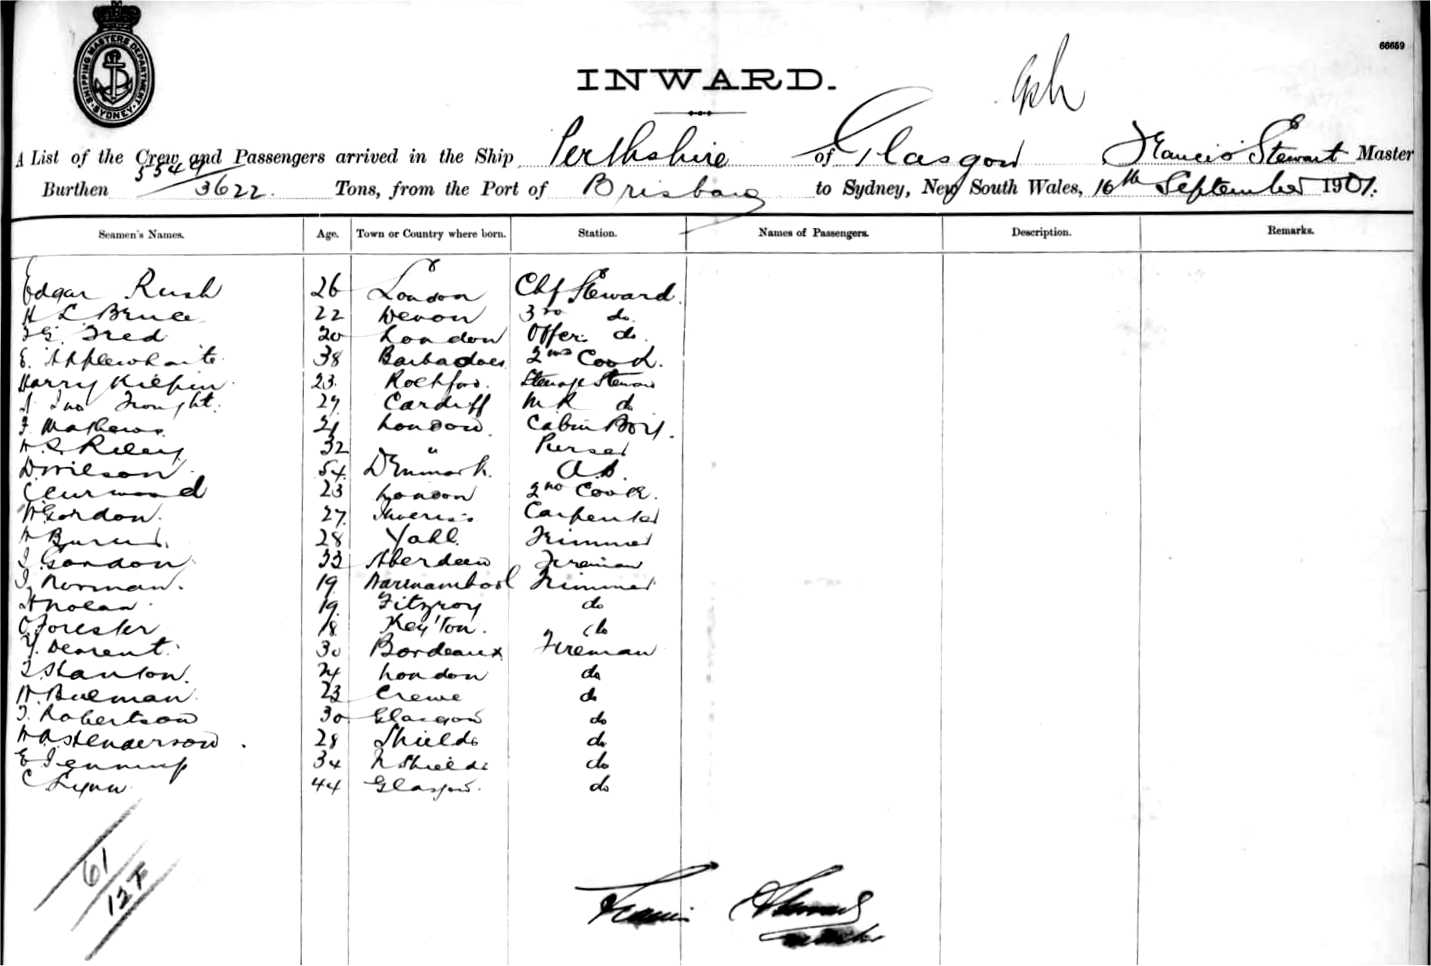 66659
SHIPPING MASTERS DEPARTMENT SYDNEY
INWARD.
A List of the Crew and Passengers arrived in the Ship Perthshire of Glasgow Francis Stewart Master
5549
Burthen 3622. Tons, from the Port of Brisbane to Sydney, New South Wales, 16th September 1901.
Seamen's Names. Age. Town or Country where born. Station. Names of Passengers. Description. Remarks.
Edgar Rush 26 London Chf Steward
H L Bruce 22 Devon 3rd do.
Fred 20 London Offer. do.
E. Applewhaite 38 Barbadoes 2nd Cook.
Harry Kilpin 23 Rochford Steerage Steward
27 Cardiff M R do
F Mathews 21 London Cabin Boy.
Riley 32 " Purser
D. Wilson 54 Denmark. A.B.
C Curwood 23 London 2nd Cook.
W Gordon. 27 Inverness Carpenter
28 Yall Trimmer
J. Gordon 33 Aberdeen Fireman
J. Norman. 19 Warrnambool Trimmer
Nolan 19 Fitzroy do
C Forester 18 Key'ton. do
30 Bordeaux Fireman
Stanton. 24 London do
Bulman 23 Crewe do
J. Robertson 30 Glasgow do
Henderson. 28 Shields do
E Jennings 34 N Shields do
C Lynn 44 Glasgow. do
61
Francis Stewart
Master